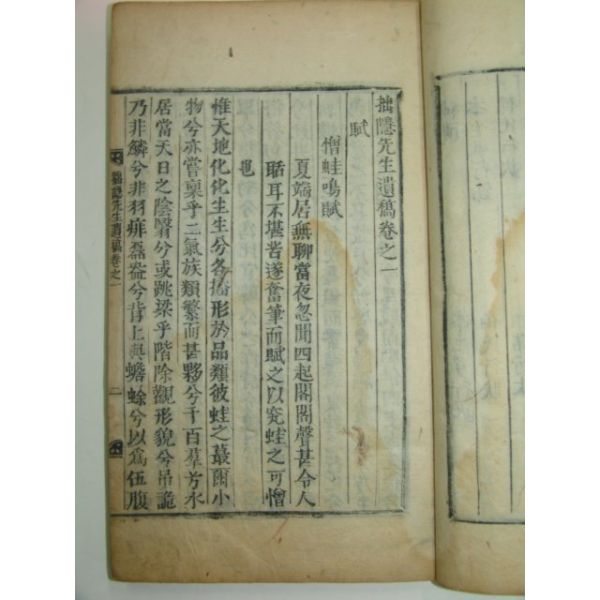 拙隱先生遺稿卷之一
賦
憎蛙鳴賦
夏端居無聊當夜忽聞四起閣閣聲甚令人
聒耳不堪苦遂奮筆而賦之以究蛙之可憎
也
惟天地化化生生兮各播形於品類彼蛙之蕞爾小
物兮亦嘗稟乎二氣族類繁而甚夥兮千百羣芳水
居當天日之陰翳兮或跳梁乎階除觀形貌兮吊詭
乃非鱗兮非羽痱磊䃁兮背上與蟾蜍兮以爲伍腹
拙隱先生遺稿卷之一